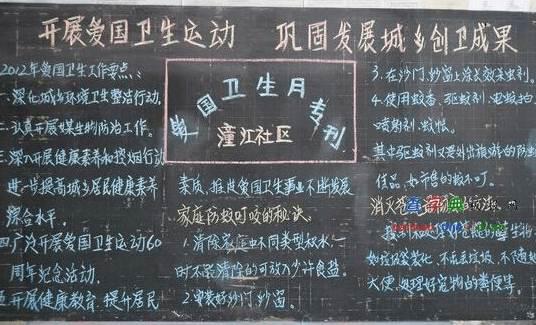 开展爱国卫生运动 巩固发展城乡创卫成果
2012年爱国卫生工作要点:
一.深化城乡环境卫生整洁行动.
二.认真开展媒生物防治工作。
三.深入开展健康素养和控烟行动
进一步提高城乡居民健康素养
综合水平.
四.广泛开展爱国卫生运动60
周年纪念活动.
五.开展健康教育 提升居民
爱国卫生月专刊
潼江社区
素质、推进爱国卫生事业不断发展
家庭防蚊叮咬的秘诀。
1.清除家庭中不同类型积水一
时不易清除的可放入少许食盐。
2.安装好沙门.纱窗.
3.在沙门.纱窗上涂长效杀虫剂。
4.使用蚊香.驱蚊剂.电蚊拍.
喷射剂、蚊帐.
其中驱蚊剂又是外出旅游的防虫
佳品,
消灭
大便、处理好宠物的粪便等.